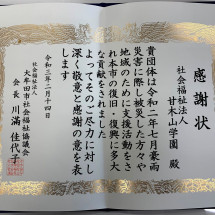 感謝状
社会福祉法人
甘木山学園 殿
貴団体は令和二年七月豪雨
災害に際し被災した方々や
地域のために支援活動をさ
れ本市の復旧・復興に多大
な貢献をされました
よってそのご尽力に対し
深く敬意と感謝の意を表
します
令和三年二月十四日
社会福祉法人
大牟田市社会福祉協議会
会長 川満 佳代子